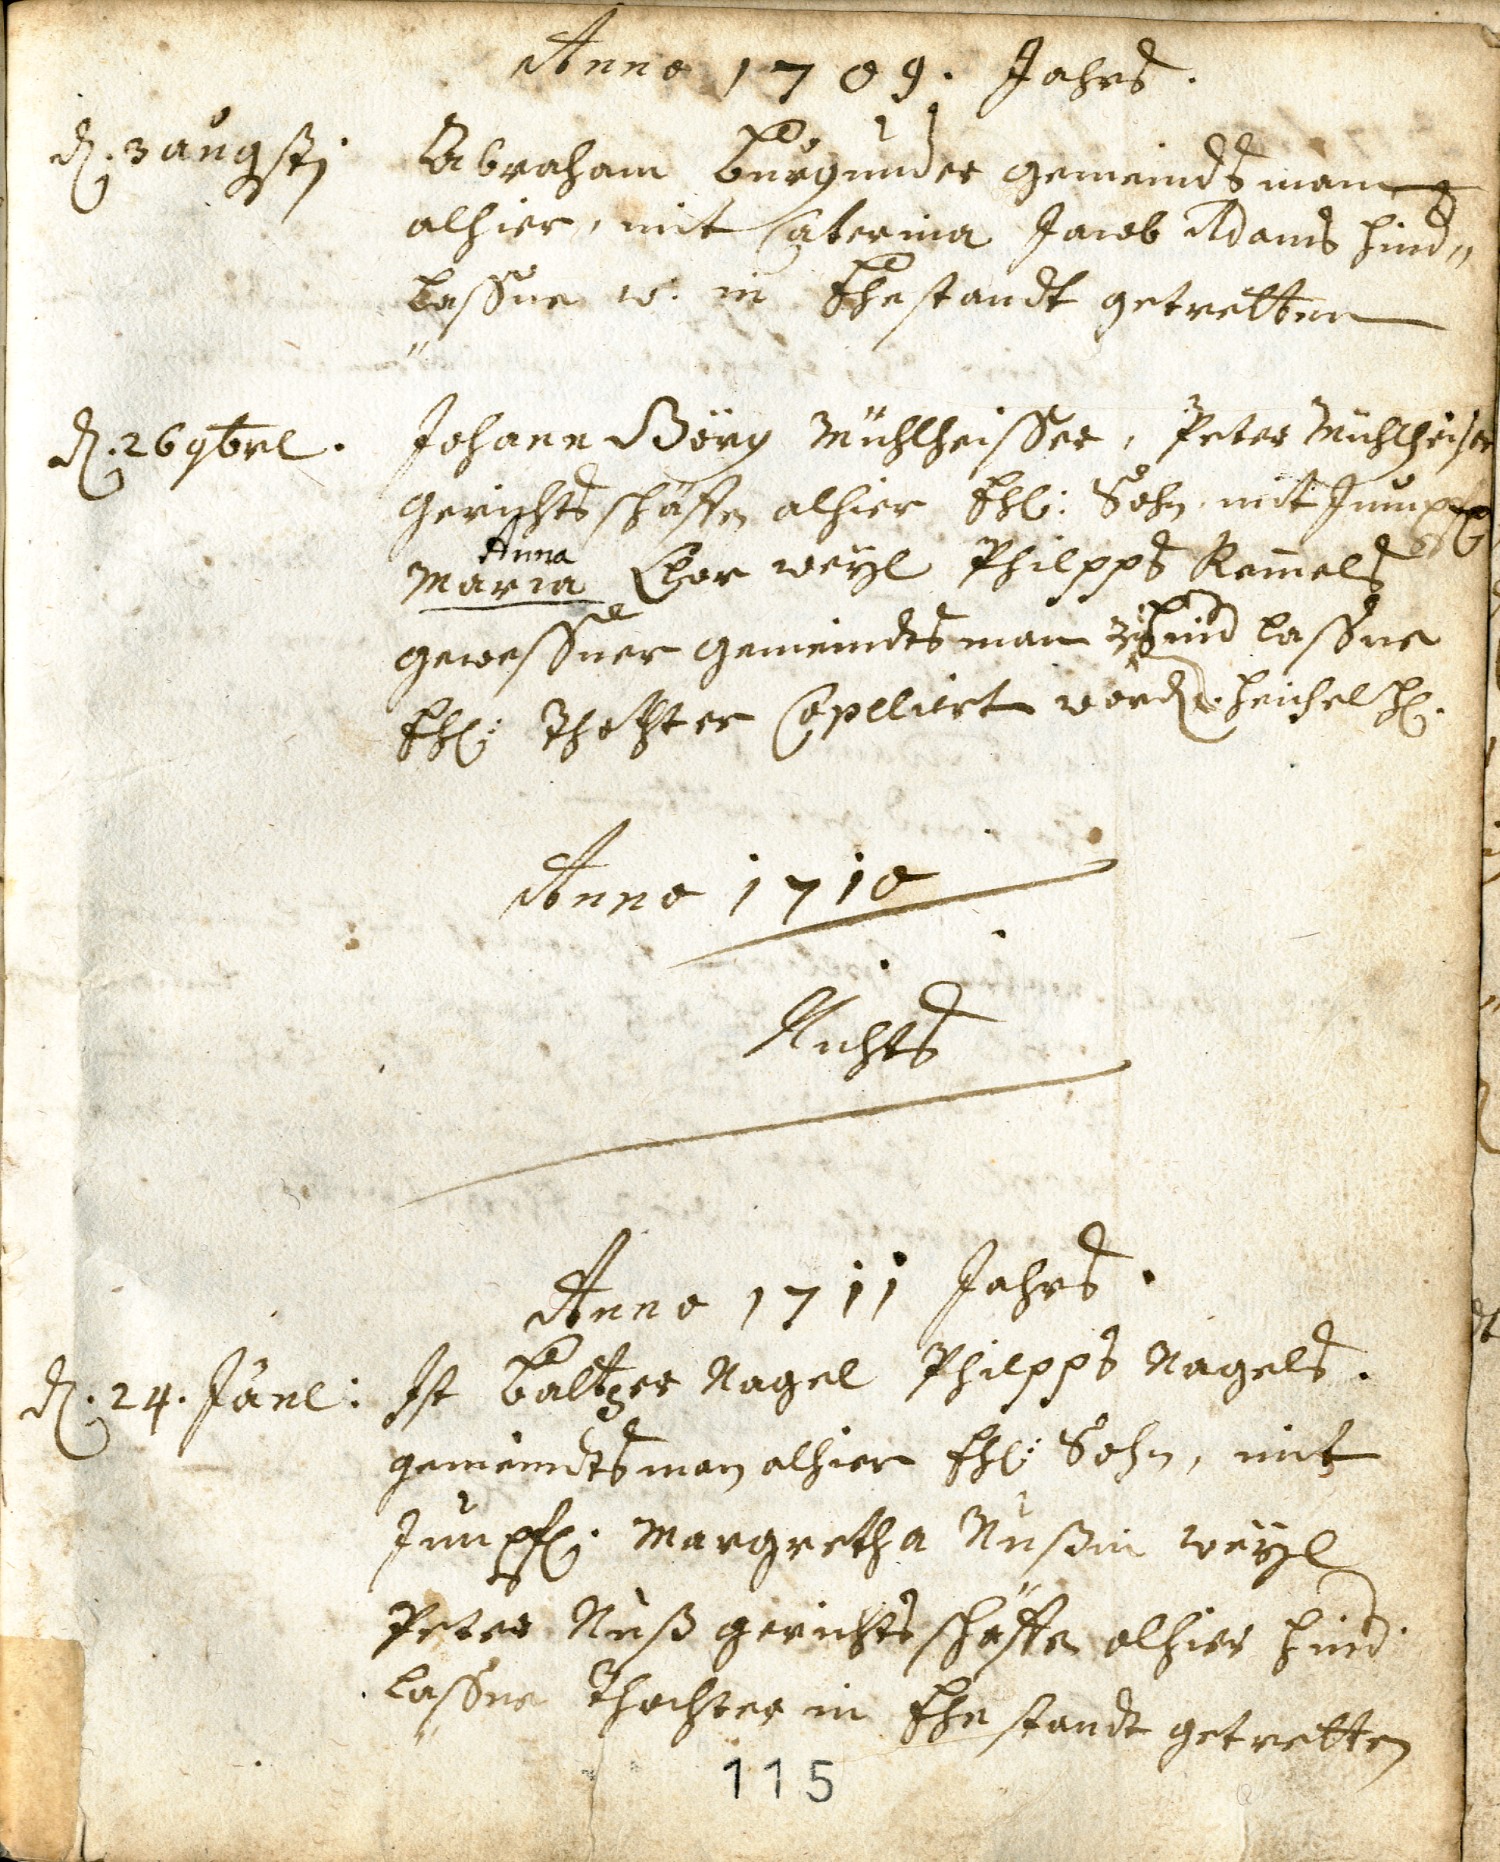 Anno 1709. Jahrs.
d. 3 augsti Abraham Burgunder gemeindsman
alhier, mit Caterina Jacob Adams hind„
lassne w. in Ehestandt getretten
d. 26 9brl. Johann Görg Mühlheisser, Peter Mühlheiser
gerichts schäffen alhier Ehl: Sohn, mit Junpf
Anna
Maria weyl Philpps Remels
gewessner gemeindts man hind lassne
Ehl: Thochter Coplliert worden.
Anno 1710
Nichts
Anno 1711 Jahrs.
d. 24. Janl: Ist Baltzer Nagel Philpps Nagels.
gemeindtsman alhier Ehl: Sohn, mit
Junpf: Margretha Nußin weyl
Peter Nuß gerichts schäffen alhier hind
lassne Thochter in Ehe standt getretten
115